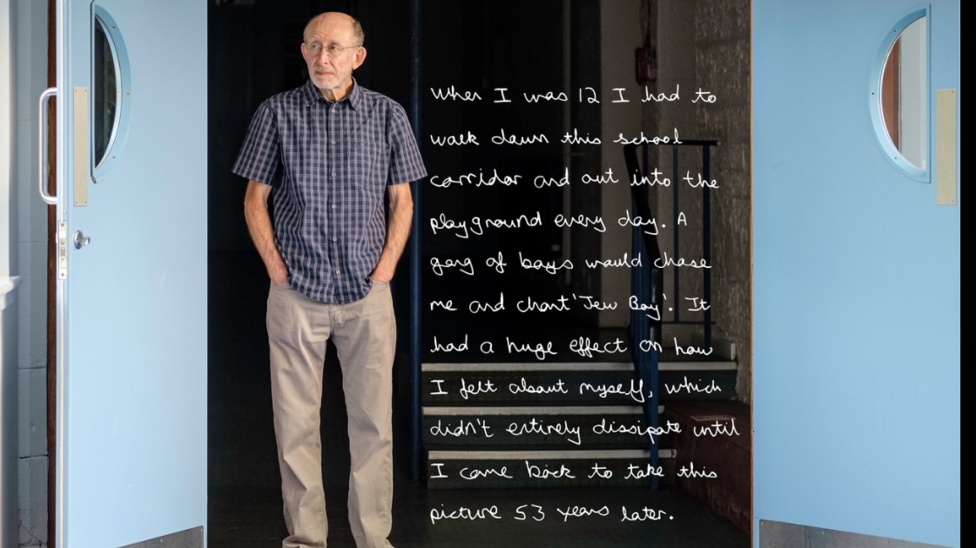 When I was 12 I had to
walk down this school
corridor and out into the
playground every day. A
gang of boys would chase
me and chant 'Jew Boy'. It
had a huge effect on how
I felt about myself, which
didn't entirely dissipate until
I came back to take this
picture 53 years later.